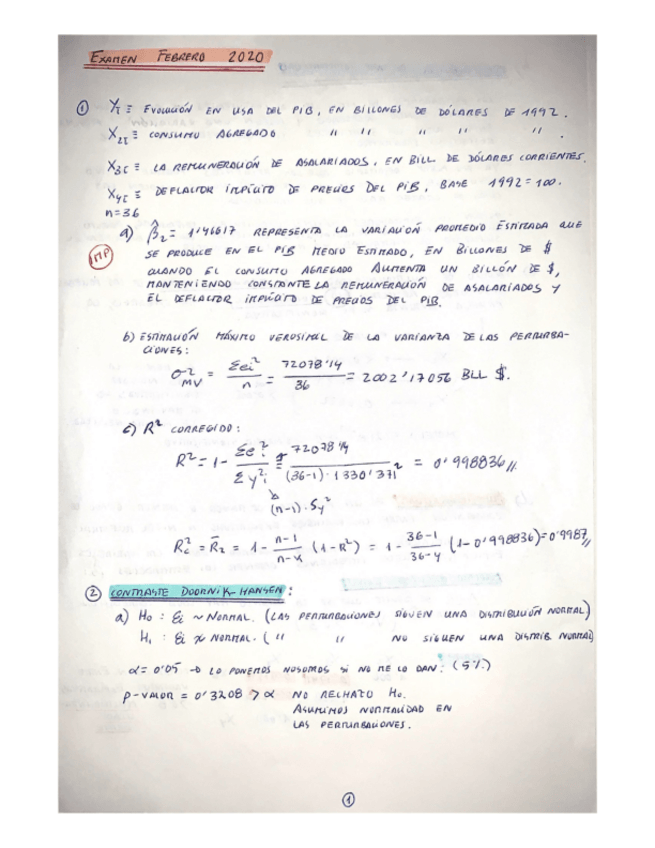 EXAMEN FEBRERO 2020
① Yᵢ ≡ EVOLUCIÓN EN USA DEL PIB, EN BILLONES DE DÓLARES DE 1992.
X₂ᵢ ≡ CONSUMO AGREGADO " " " " "
X₃ᵢ ≡ LA REMUNERACIÓN DE ASALARIADOS, EN BILL. DE DÓLARES CORRIENTES.
X₄ᵢ ≡ DEFLACTOR IMPLÍCITO DE PRECIOS DEL PIB, BASE 1992 = 100.
n = 36
a) β̂₂ = 1'46617 REPRESENTA LA VARIACIÓN PROMEDIO ESTIMADA QUE
SE PRODUCE EN EL PIB MEDIO ESTIMADO, EN BILLONES DE $
IMP CUANDO EL CONSUMO AGREGADO AUMENTA UN BILLÓN DE $,
MANTENIENDO CONSTANTE LA REMUNERACIÓN DE ASALARIADOS Y
EL DEFLACTOR IMPLÍCITO DE PRECIOS DEL PIB.
b) ESTIMACIÓN MÁXIMO VEROSIMIL DE LA VARIANZA DE LAS PERTURBA-
CIONES:
σ²MV = Σeᵢ² / n = 72078'14 / 36 = 2002'17056 BLL $.
c) R² CORREGIDO:
R² = 1 - Σeᵢ² / Σyᵢ² = 72078'14 / (36-1)·1330'371² = 0'998836
(n-1)·Sy²
R²c = R̄₂ = 1 - n-1 / n-k (1-R²) = 1 - 36-1 / 36-4 (1-0'998836) = 0'9987
② CONTRASTE DOORNIK-HANSEN:
a) H₀ : εᵢ ~ NORMAL. (LAS PERTURBACIONES SIGUEN UNA DISTRIBUCIÓN NORMAL)
H₁ : εᵢ ≁ NORMAL. ( " " NO SIGUEN UNA DISTRIB NORMAL)
α = 0'05 → LO PONEMOS NOSOTROS SI NO ME LO DAN. (5%)
P-VALOR = 0'3208 > α NO RECHAZO H₀.
ASUMIMOS NORMALIDAD EN
LAS PERTURBACIONES.
①